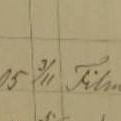 05 3/11 Film